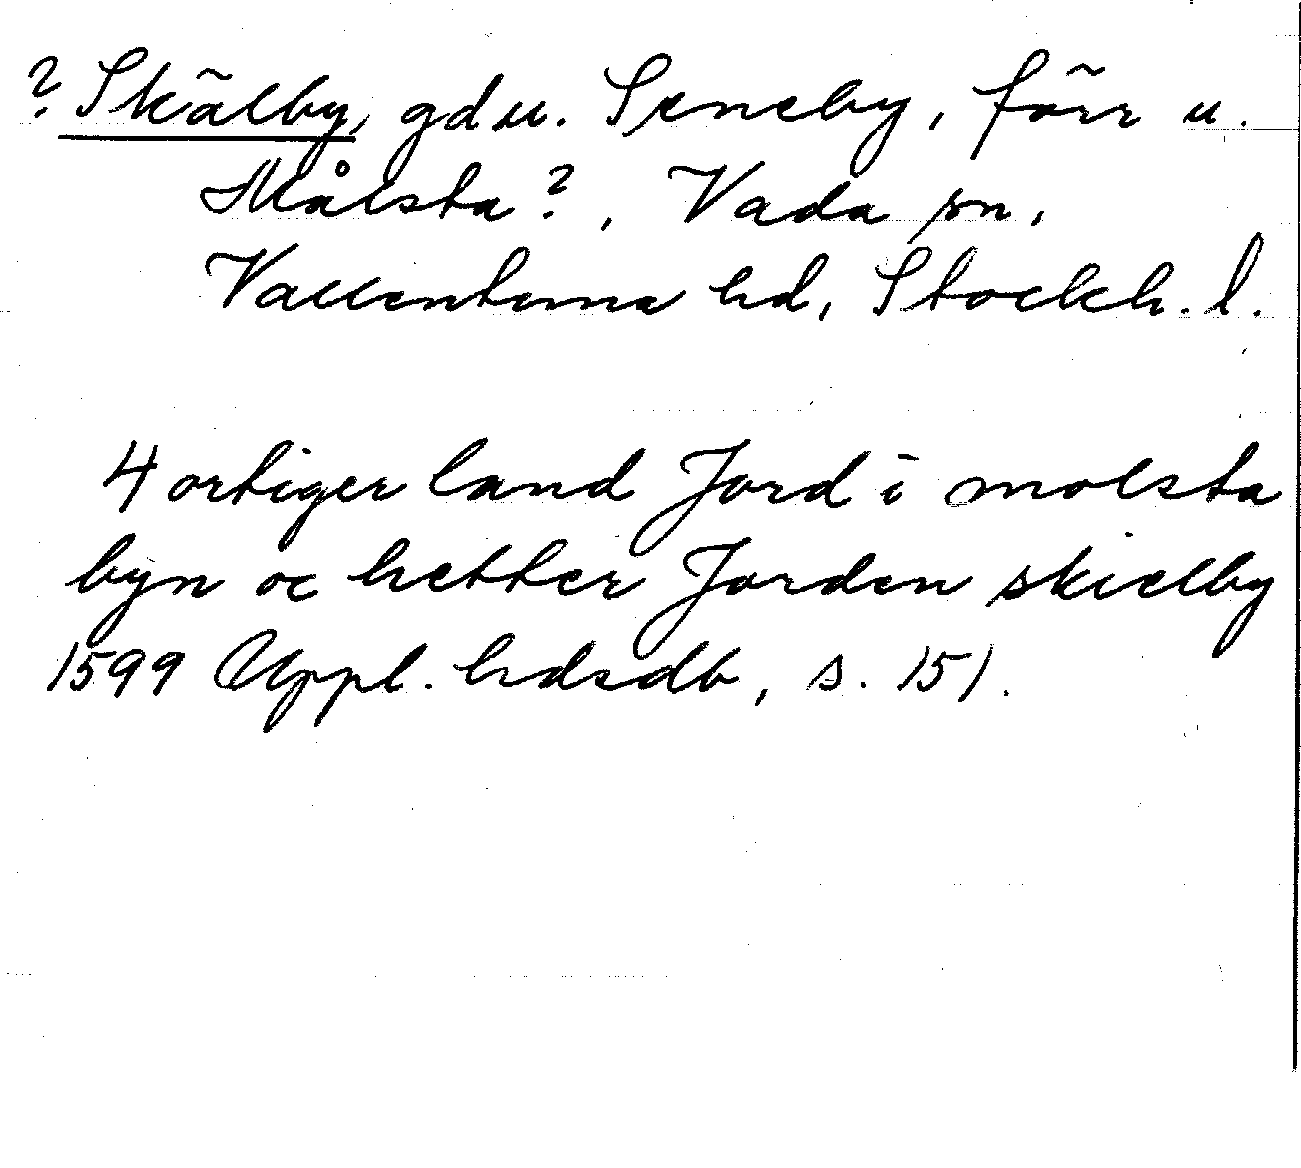 ? Skälby, gd u. Seneby, förr u.
Målsta?, Vada sn,
Vallentuna hd, Stockh. l.
4 ortiger land Jord i molsta
byn oc hetter Jorden skielby
1599 Uppl. hdsdb, s. 151.